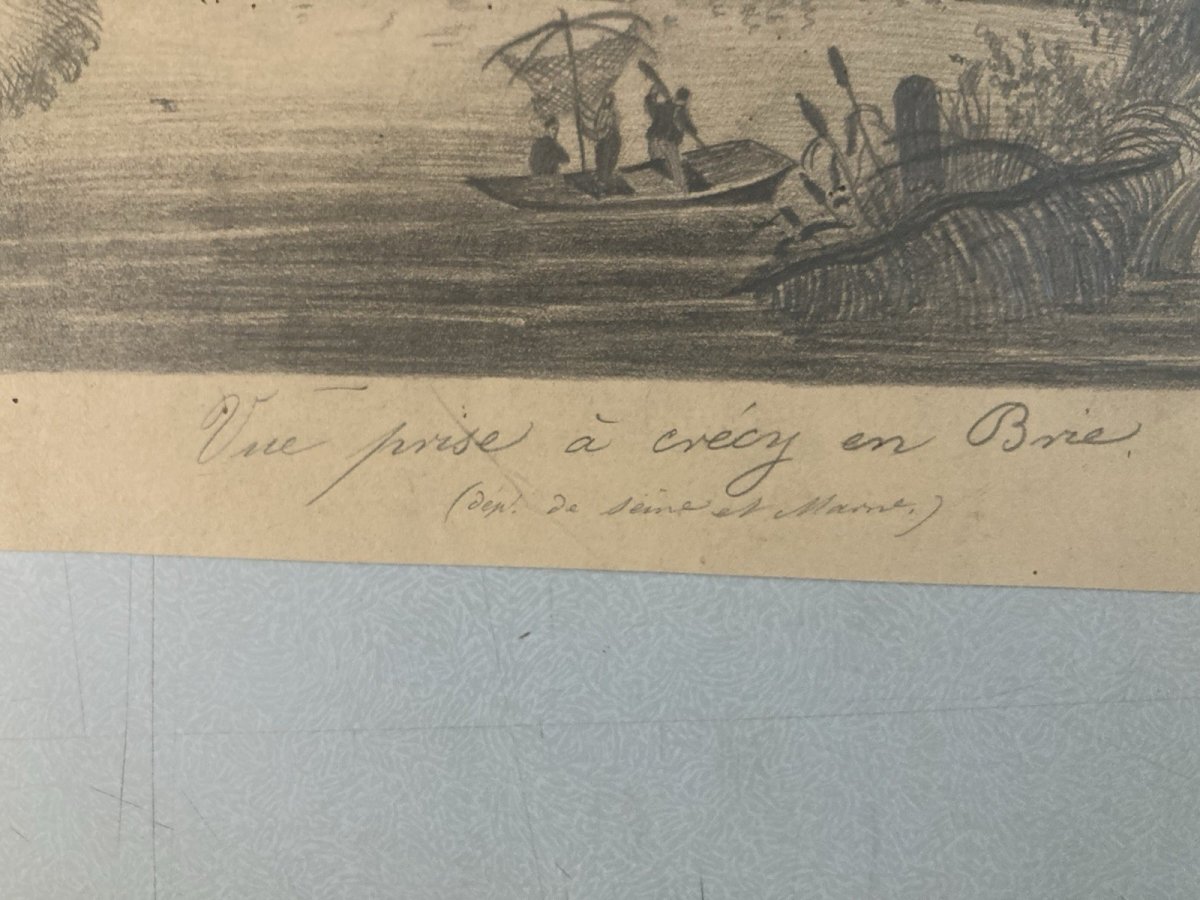 Vue prise à crécy en Brie.
(dép. de seine et Marne.)